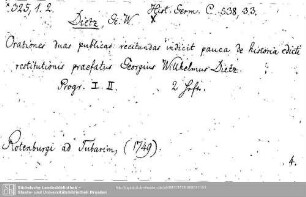 *325,1.2. Hist. Germ. C. 538, 33.
Dietz G. W.
Orationes duas publicas recitandas indicit pauca de historia edicti
restitutionis praefatus Georgius Wilhelmus Dietz.
Progr. I. II. 2
Rotenburgi ad Tubarim, (1749)
4.
Sächsische Landesbibliothek -
Staats- und Universitätsbibliothek Dresden